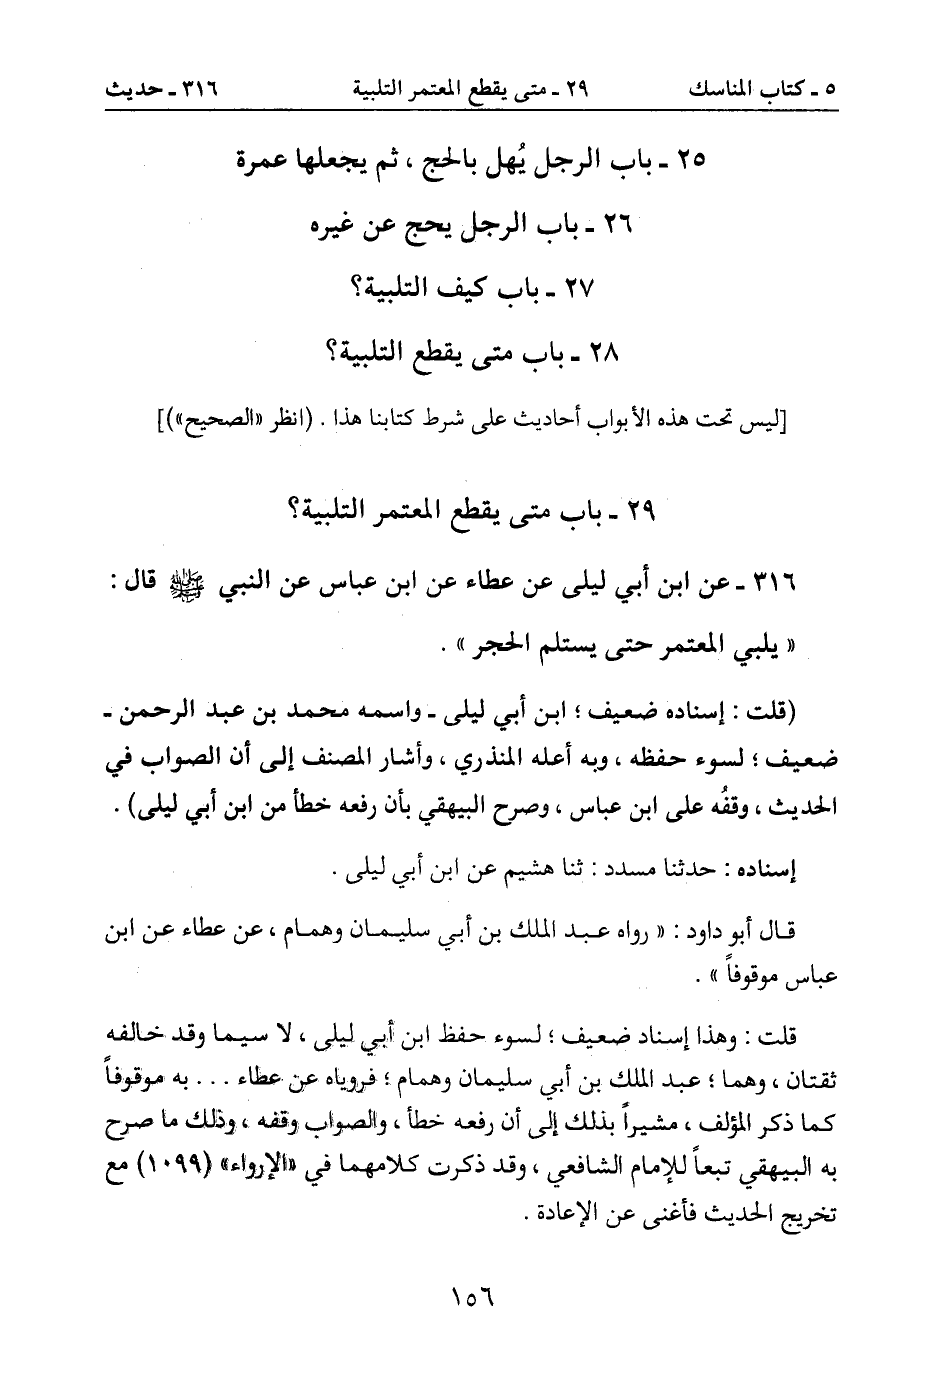 ٥ ـ كتاب المناسك ٢٩ ـ متى يقطع المعتمر التلبية ٣١٦ ـ حديث
٢٥ ـ باب الرجل يُهل بالحج ، ثم يجعلها عمرة
٢٦ ـ باب الرجل يحج عن غيره
٢٧ ـ باب كيف التلبية؟
٢٨ ـ باب متى يقطع التلبية؟
[ليس تحت هذه الأبواب أحاديث على شرط كتابنا هذا . (انظر «الصحيح»)]
٢٩ ـ باب متى يقطع المعتمر التلبية؟
٣١٦ ـ عن ابن أبي ليلى عن عطاء عن ابن عباس عن النبي ﷺ قال :
« يلبي المعتمر حتى يستلم الحجر » .
(قلت : إسناده ضعيف ؛ ابن أبي ليلى ـ واسمه محمد بن عبد الرحمن ـ
ضعيف ؛ لسوء حفظه ، وبه أعله المنذري ، وأشار المصنف إلى أن الصواب في
الحديث ، وقفُه على ابن عباس ، وصرح البيهقي بأن رفعه خطأ من ابن أبي ليلى) .
إسناده : حدثنا مسدد : ثنا هشيم عن ابن أبي ليلى .
قال أبو داود : « رواه عبد الملك بن أبي سليمان وهمام ، عن عطاء عن ابن
عباس موقوفاً » .
قلت : وهذا إسناد ضعيف ؛ لسوء حفظ ابن أبي ليلى ، لا سيما وقد خالفه
ثقتان ، وهما ؛ عبد الملك بن أبي سليمان وهمام ؛ فروياه عن عطاء . . . به موقوفاً
كما ذكر المؤلف ، مشيراً بذلك إلى أن رفعه خطأ ، والصواب وقفه ، وذلك ما صرح
به البيهقي تبعاً للإمام الشافعي ، وقد ذكرت كلامهما في «الإرواء» (١٠٩٩) مع
تخريج الحديث فأغنى عن الإعادة .
١٥٦